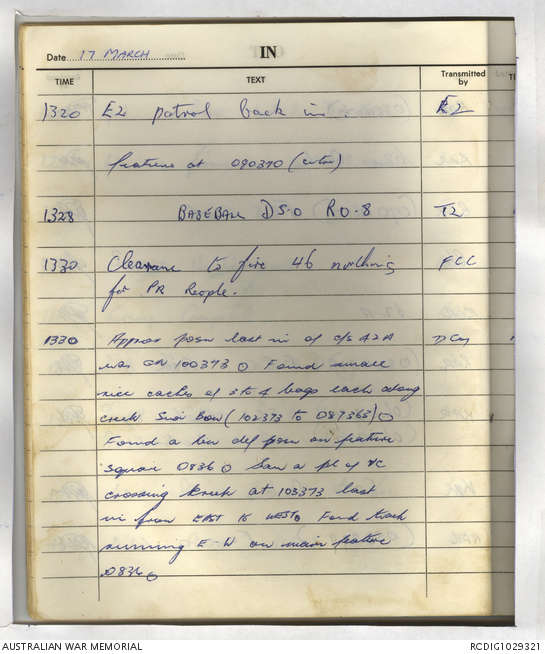 Date 17 MARCH IN
TIME TEXT Transmitted by
1320 E2 patrol back in. E2
feature at 090370 (cutor)
1328 BASEBALL DS-0 R0-8 T2
1330 Clearance to fire 46 northing FCC
for PR People.
1330 Approx posn last in of c/s 42A D Coy
was GR 100373 O Found small
rice caches of 3 to 4 bags each along
creek Suoi Bow (102373 to 087365) O
Found a bn def posn on feature
square 0836 O Saw a pl of VC
crossing creek at 103373 last
in from EAST to WEST O Found track
running E-W on main feature
0836 O
AUSTRALIAN WAR MEMORIAL RCDIG1029321